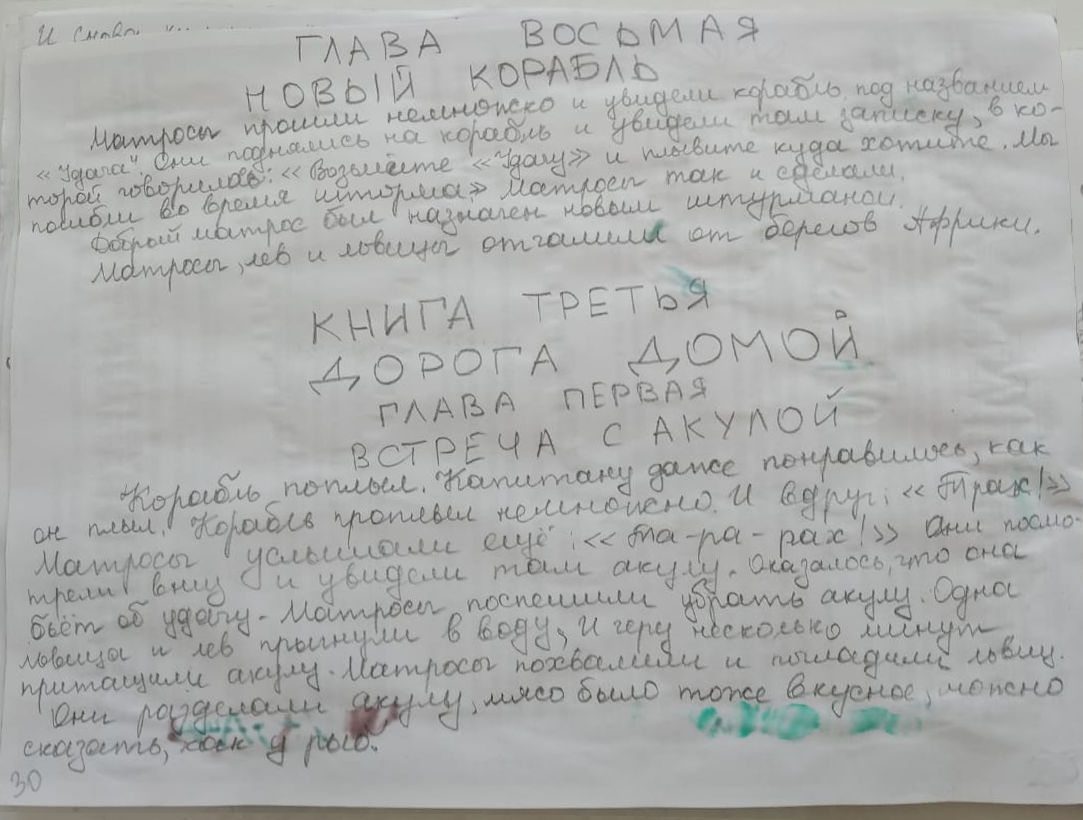 И снова
ГЛАВА ВОСЬМАЯ
НОВЫЙ КОРАБЛЬ
Матросы прошли немножко и увидели корабль под названием
«Удача". Они поднялись на корабль и увидели там записку, в ко-
торой говорилось: «Возьмёте «Удачу» и плывите куда хотите. Мы
погибли во время шторма» Матросы так и сделали.
Добрый матрос был назначен новым штурманом.
Матросы, лев и львицы отчалили от берегов Африки.
КНИГА ТРЕТЬЯ
ДОРОГА ДОМОЙ
ГЛАВА ПЕРВАЯ
ВСТРЕЧА С АКУЛОЙ
Корабль поплыл. Капитану даже понравилось, как
он плыл. Корабль проплыл немножко. И вдруг: «Трах!»
Матросы услышали ещё: «Та-ра-рах!» Они посмо-
трели вниз и увидели там акулу. Оказалось, что она
бьёт об удачу. Матросы поспешили убрать акулу. Одна
львица и лев прыгнули в воду, И через несколько минут
притащили акулу. Матросы похвалили и погладили львиц.
Они разделали акулу, мясо было тоже вкусное, можно
сказать, как у рыб.
30